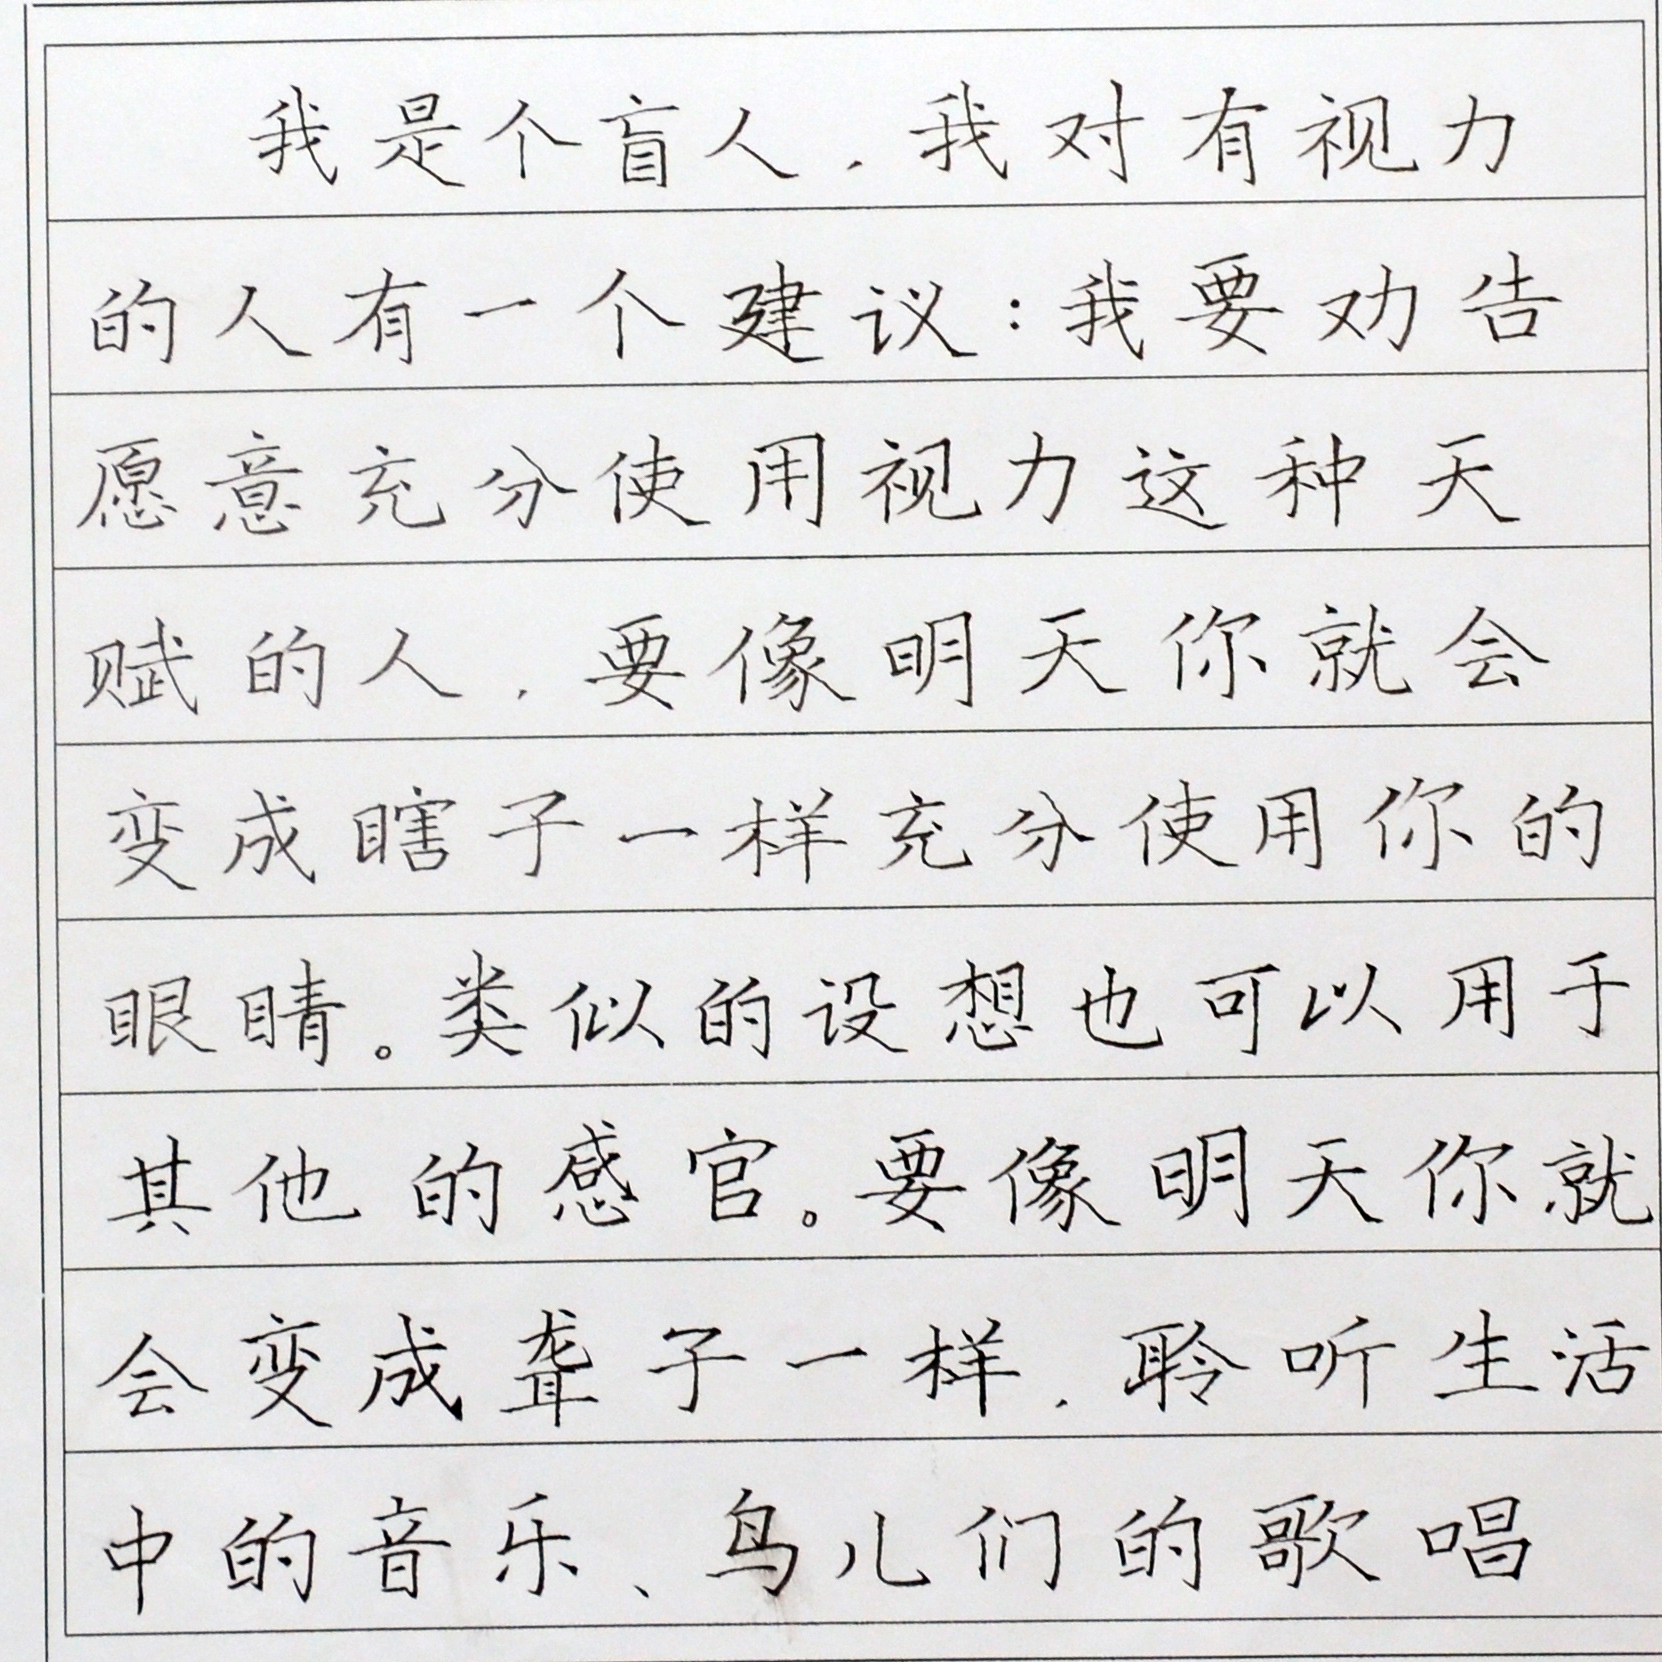 我是个盲人，我对有视力
的人有一个建议：我要劝告
愿意充分使用视力这种天
赋的人，要像明天你就会
变成瞎子一样充分使用你的
眼睛。类似的设想也可以用于
其他的感官。要像明天你就
会变成聋子一样，聆听生活
中的音乐、鸟儿们的歌唱